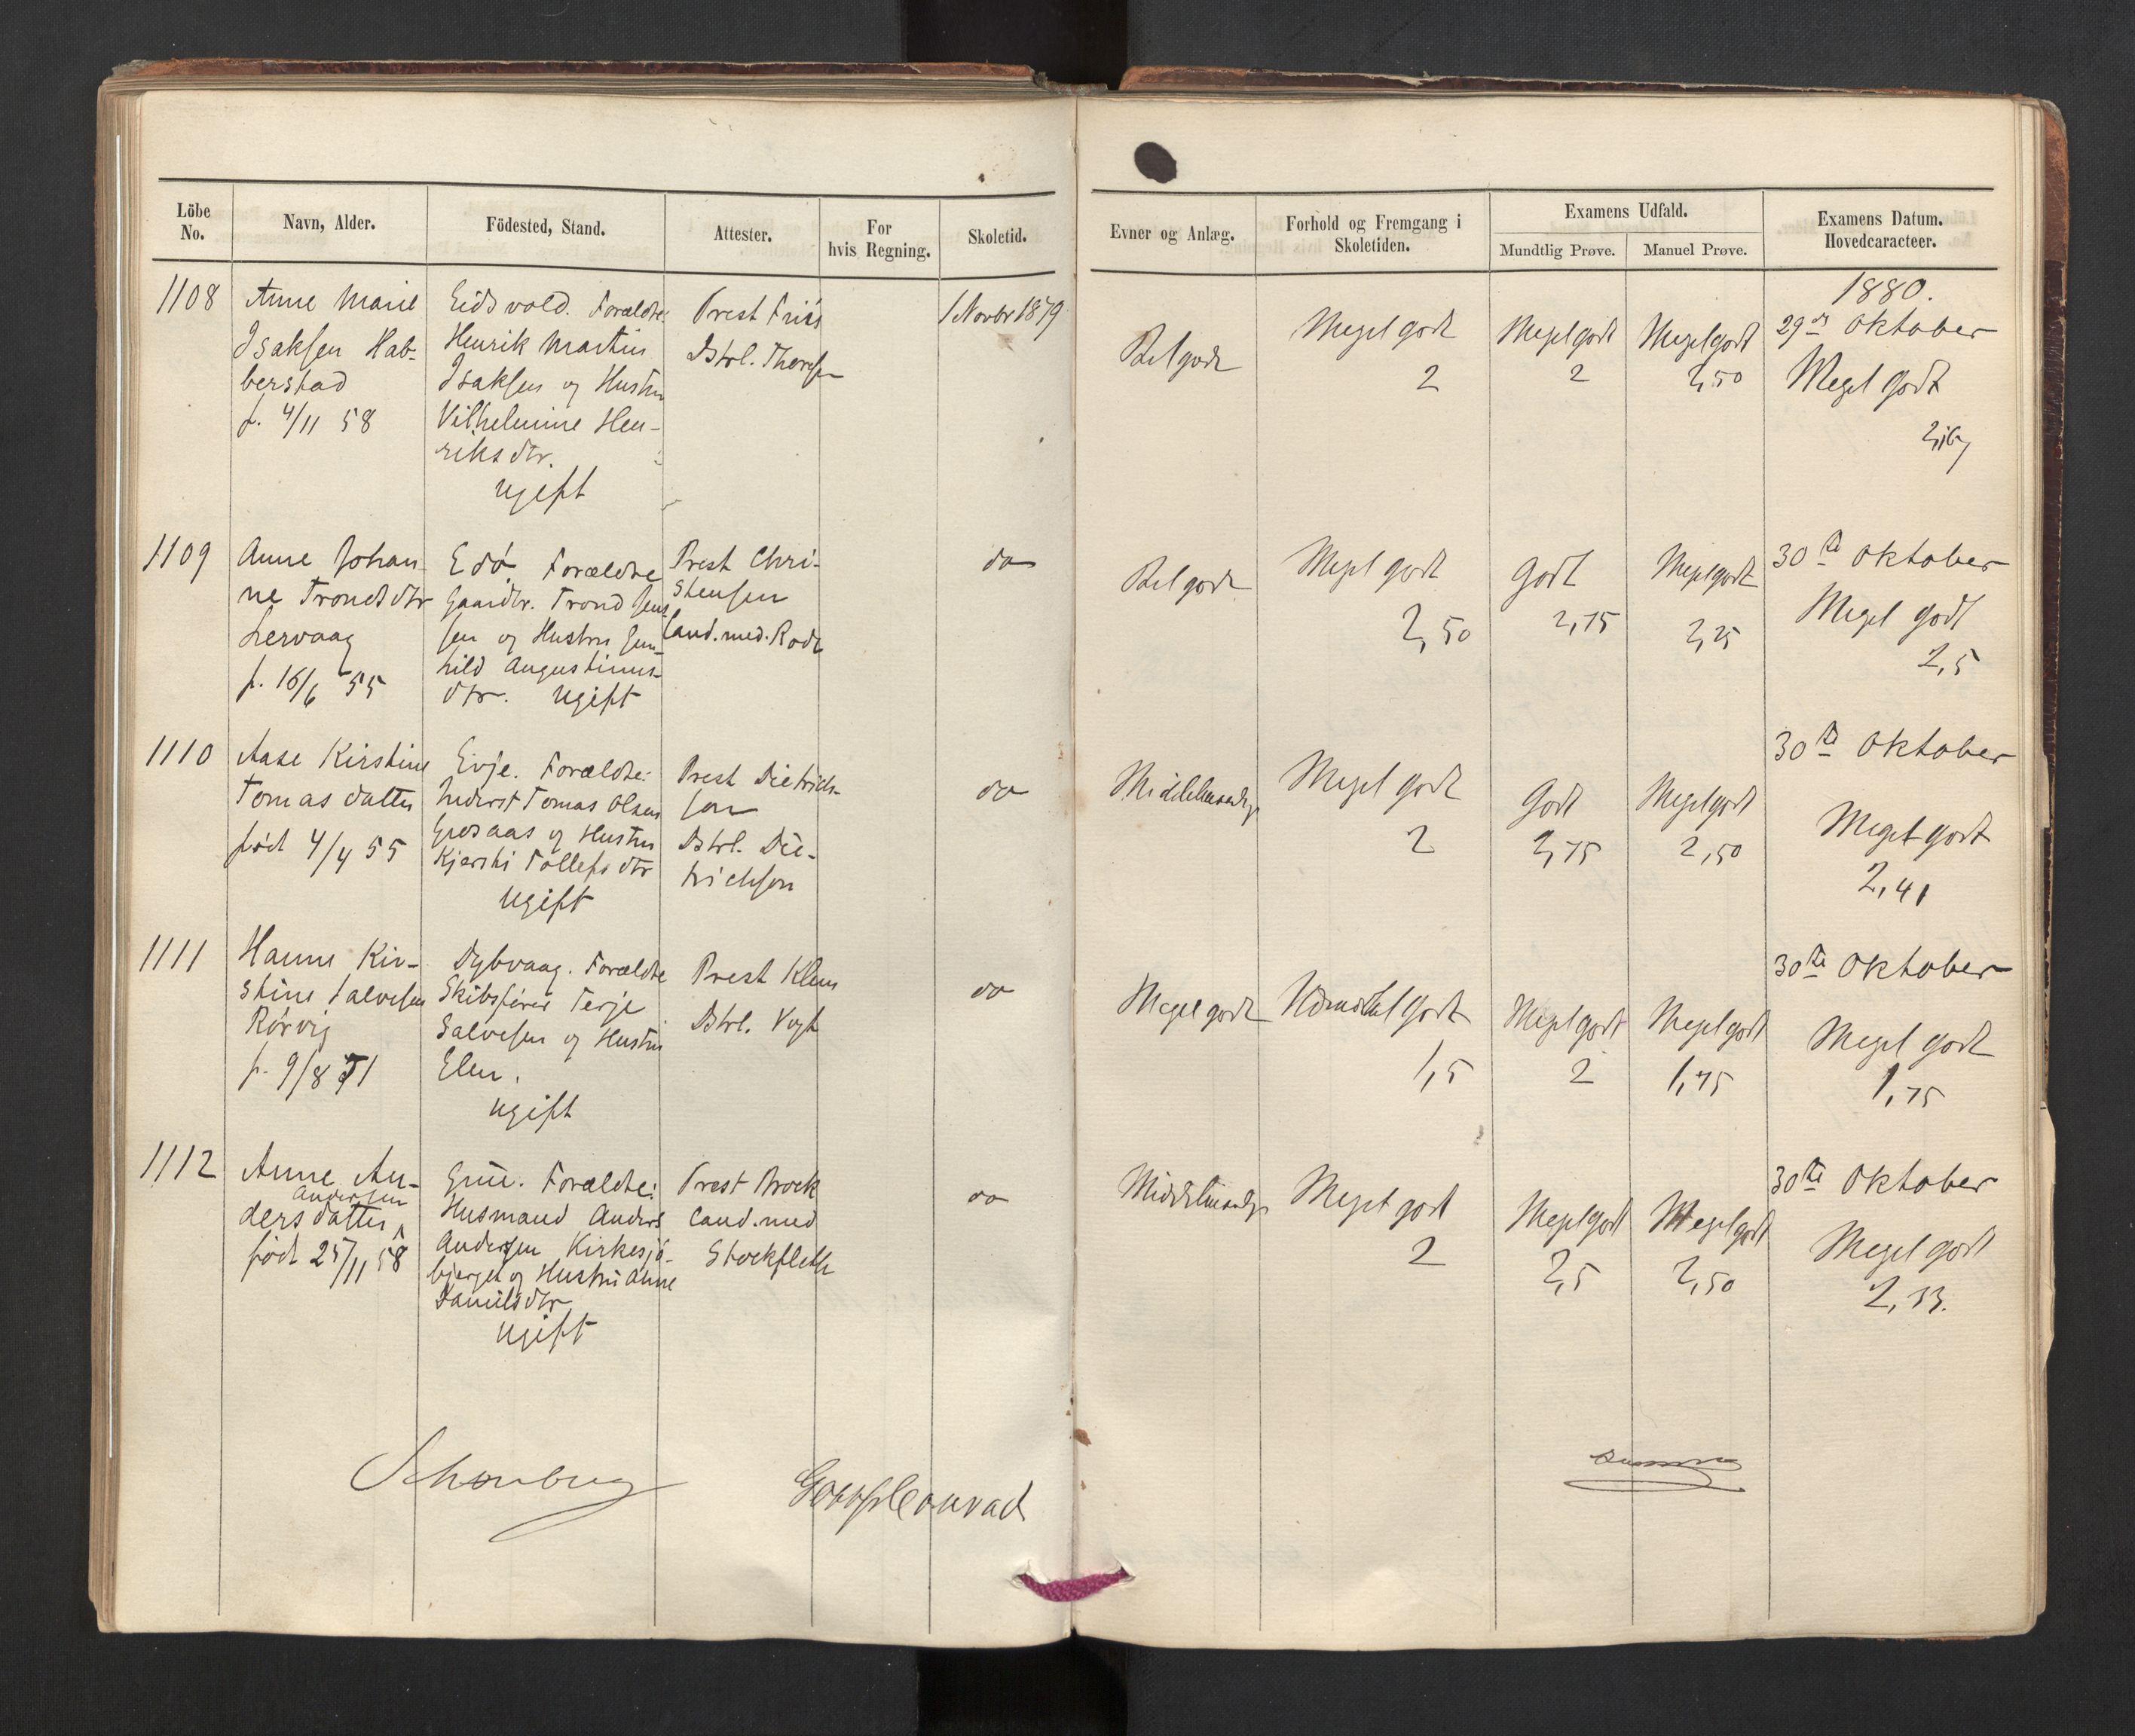 Löbe No.
Navn, Alder.
Födested, Stand.
Attester.
For hvis Regning.
Skoletid.
Evner og Anlæg.
Forhold og Fremgang i Skoletiden.
Examens Udfald.
Mundtlig Prøve.
Manuel Prøve.
Examens Datum. Hovedcaracteer.
1108
Anne Marie
Isaksen Hab-
berstad
f. 4/11 58
Eidsvold. Forældre:
Henrik Martin
Isaksen og Hustru
Vilhelmine Hen-
riksdtr.
ugift
Prest Friis
Dstrl. Thoresen
1 Novbr 1879
Relgodt
Meget godt
2
Megetgodt
2
Megetgodt
2,50
1880.
29de Oktober
Meget godt
2,16
1109
Anne Johan-
ne Trondsdtr
Lervaag
f. 16/6 55
Edö. Forældre
Gaardbr. Trond Jens
sen og Hustru Gun
hild Augustinus-
dtr. ugift
Prest Chri-
stensen
Cand. med. Rode
do
Relgodt
Meget godt
2,50
Godt
2,75
Megetgodt
2,25
30te Oktober
Meget godt
2,5
1110
Aase Kirstine
Tomasdatter
född 4/4 55
Evje. Forældre:
Inderst Tomas Olsen
og Hustru
Kjersti Tollefsdtr
ugift
Prest Dietrich-
son
Dstrl. Die-
trichson
do
Middelmaadig
Meget godt
2
Godt
2,75
Megetgodt
2,50
30te Oktober
Meget godt
2,41
1111
Hanne Kir-
stine Salvesen
Rörvig
f. 9/8 51
Dybvaag. Forældre
Skibsförer Terje
Salvesen og Hustru
Elen.
ugift
Prest Klem
Dstrl. Vogt
do
Megetgodt
Udmærket godt
1,5
Megetgodt
2
Megetgodt
1,75
30te Oktober
Meget godt
1,75
1112
Anne An-
Andersen
dersdatter
född 25/11 58
Grue. Forældre:
Husmand Anders
Andersen Kirkesjö-
bjerget og Hustru Anne
Danielsdtr
ugift
Prest Brock
Cand. med
Stockfleth
do
Middelmaadig
Meget godt
2
Megetgodt
2,5
Megetgodt
2,50
30te Oktober
Meget godt
2,33.
Schönberg
Conrad